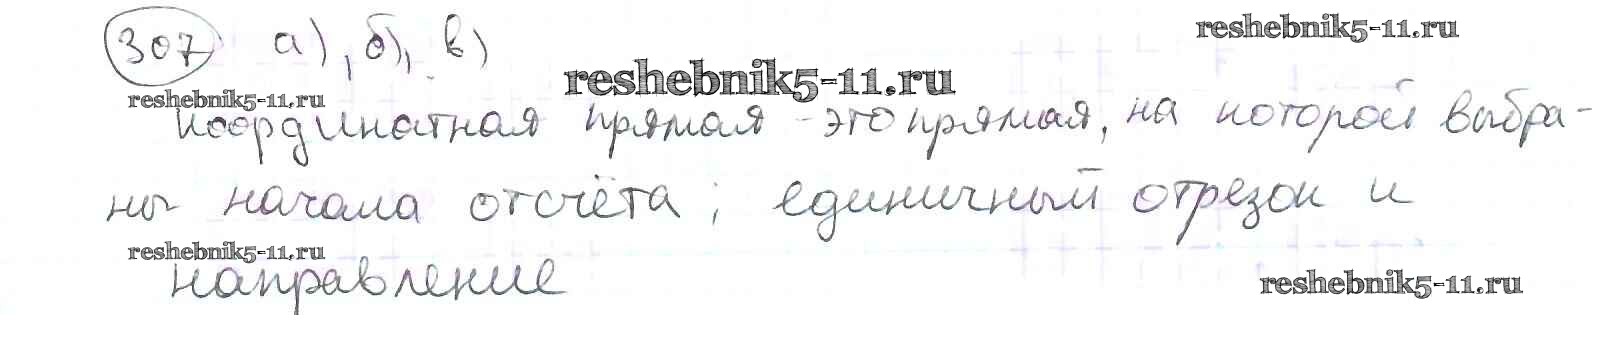 307 а), б), в)
reshebnik5-11.ru
reshebnik5-11.ru
reshebnik5-11.ru
координатная прямая - это прямая, на которой выбра-
ны начала отсчёта; единичный отрезок и
reshebnik5-11.ru
направление
reshebnik5-11.ru